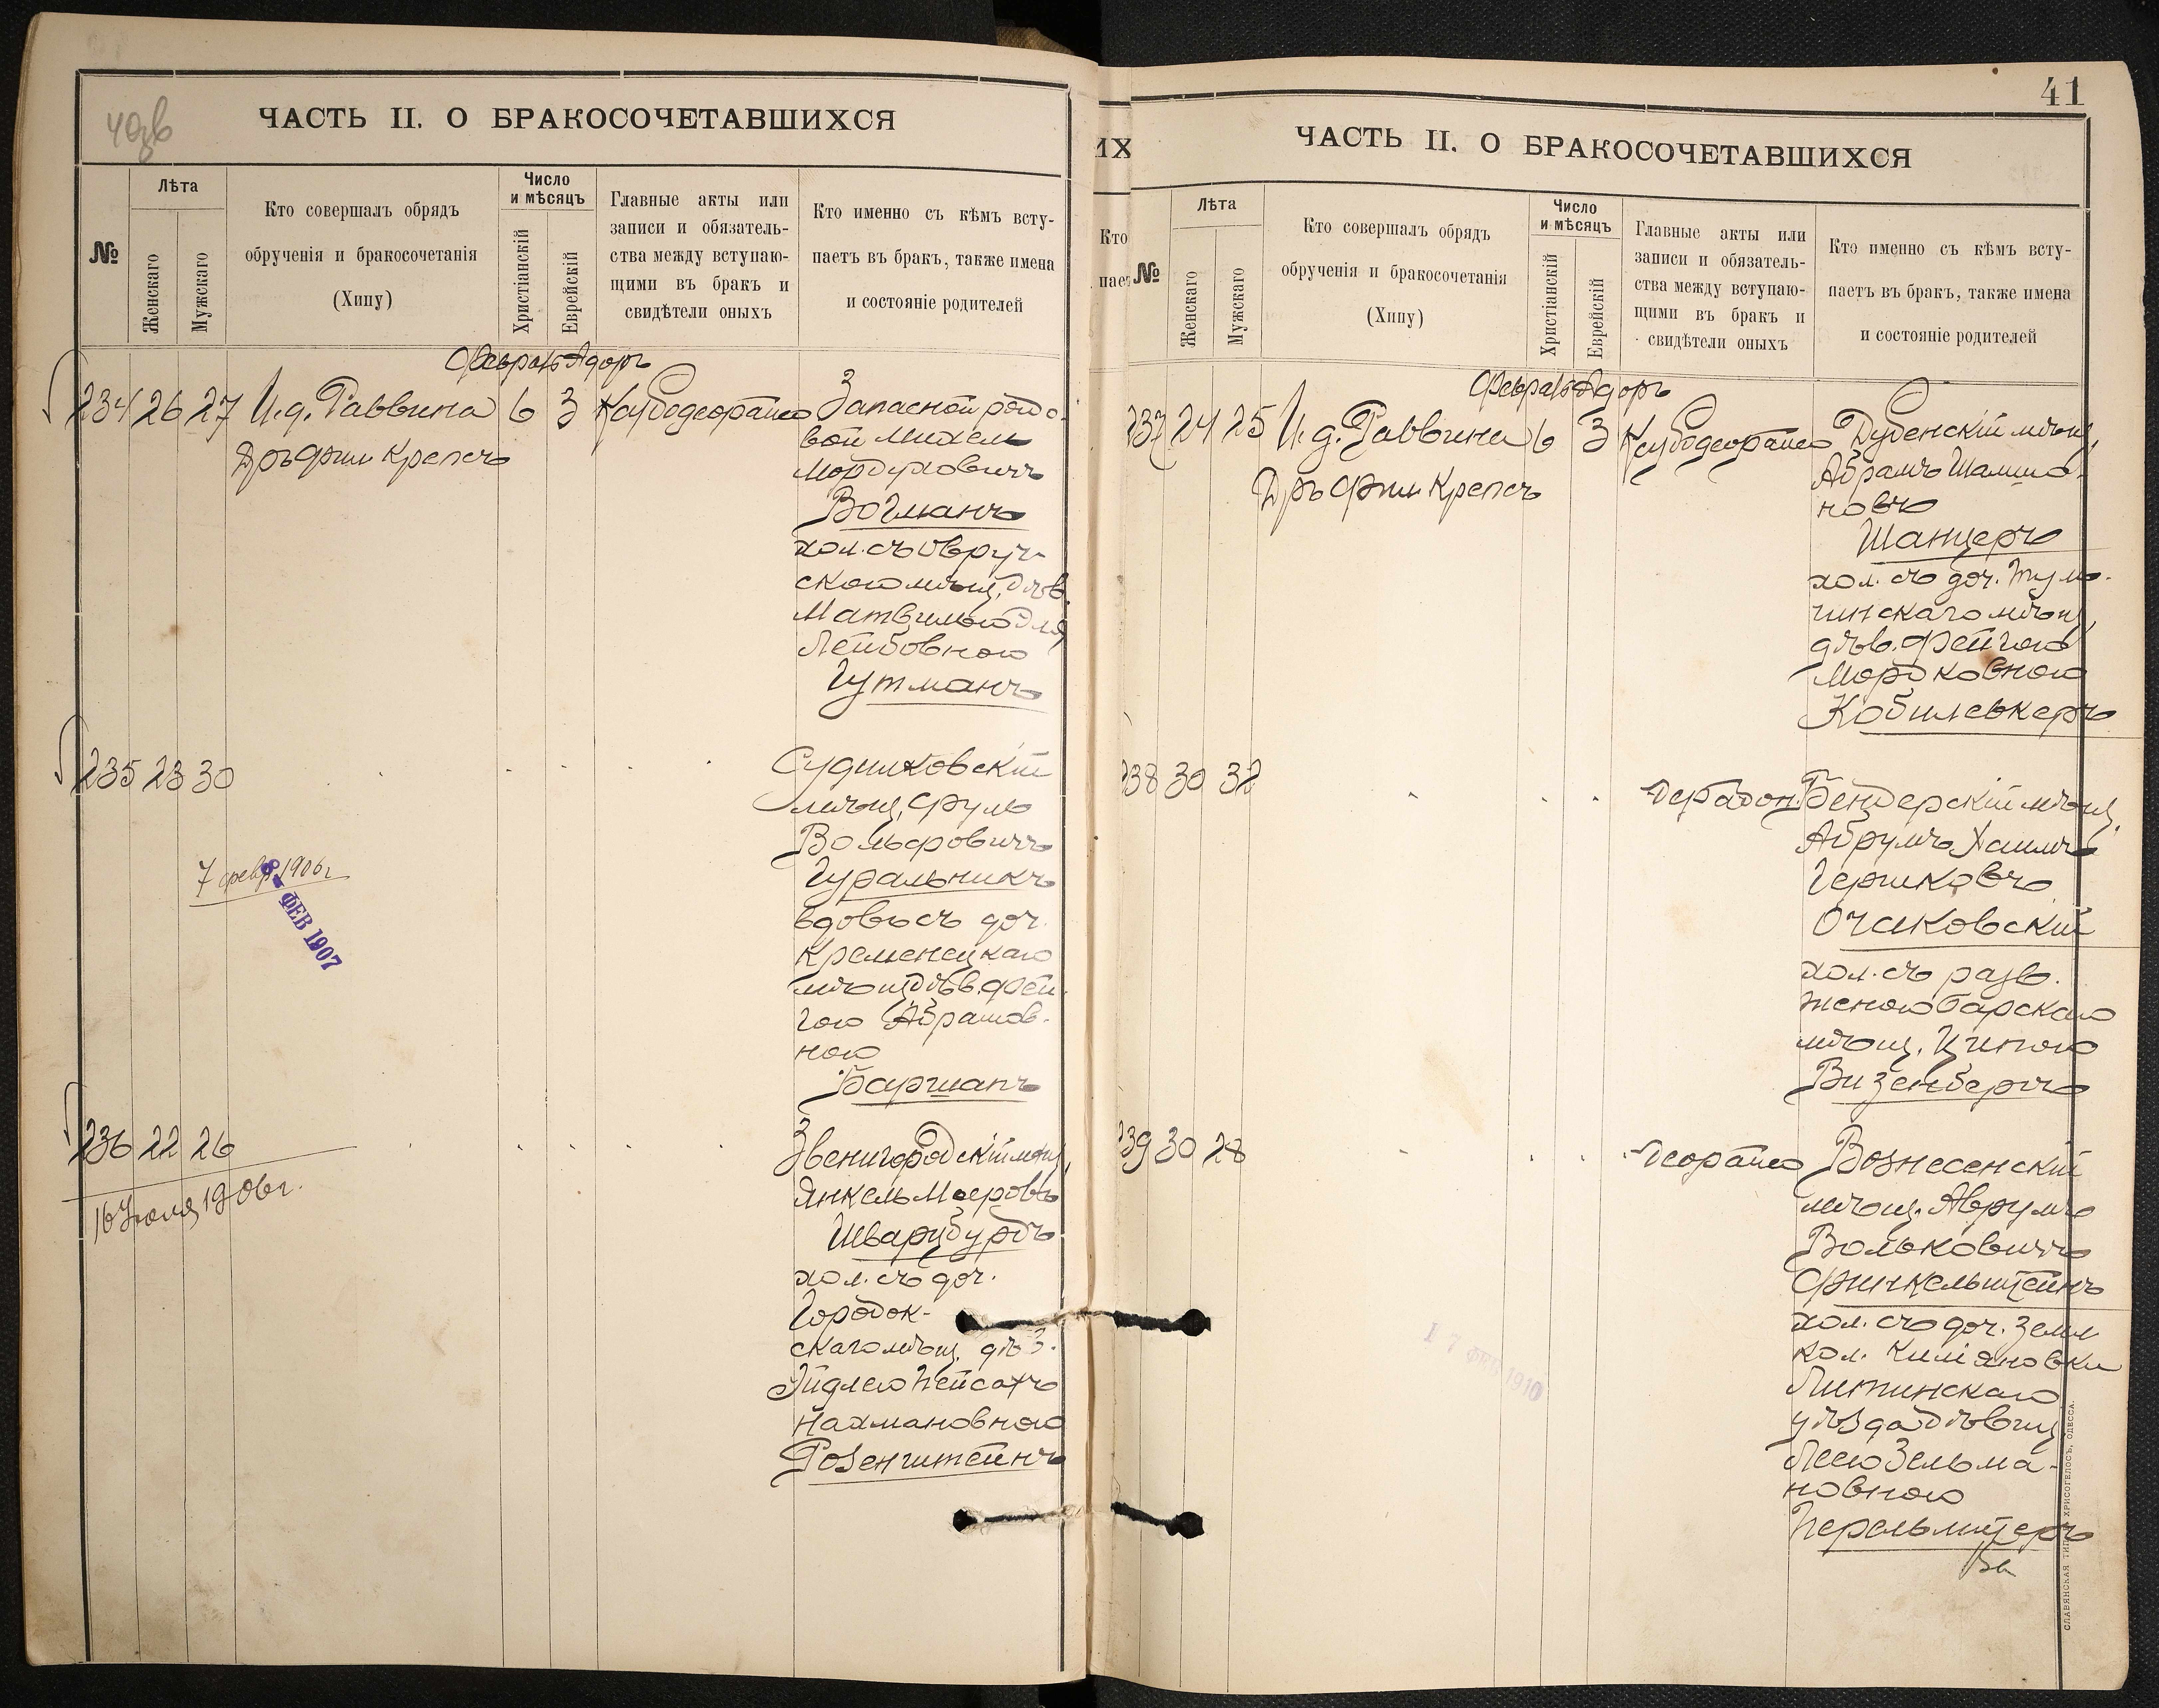 40зв
ЧАСТЬ II. О БРАКОСОЧЕТАВШИХСЯ
№
Лѣта
Женскаго
Мужскаго
Кто совершалъ обрядъ
обрученія и бракосочетанія
(Хипу)
Число
и мѣсяцъ
Христіанскій
Еврейскій
Главные акты или
записи и обязатель-
ства между вступаю-
щими въ бракъ и
свидѣтели оныхъ
Кто именно съ кѣмъ всту-
паетъ въ бракъ, также имена
и состояніе родителей
Февраль Адоръ
234 26 27 И.д. Раввина 6 3
Дръ Фили Крепсъ
Запасной рядо-
вой Михель
Мордуховичъ
Вогманъ
хол. съ Овруч-
скою мѣщ. дѣв.
Лейбовною
Гутманъ
235 23 30
Судилковскій
мѣщ. Фруль
Вольфовичъ
Гуральникъ
вдовъ съ доч.
Кременецкаго
мѣщ. дѣв. Фей-
гою Абрамов-
ною
Баршапъ
7 февр. 1906 г
8 - ФЕВ 1907
236 22 26
16 Іюля 1906 г.
Звенигородскій мѣщ.
Янкель Меровъ
Шварцбурдъ
хол. съ доч.
Городок-
скаго мѣщ. дѣв.
Эйдлею Пейсахъ
Нахмановною
Розенштейнъ
41
ЧАСТЬ II. О БРАКОСОЧЕТАВШИХСЯ
ИХ
Кто
пает
№
Лѣта
Женскаго
Мужскаго
Кто совершалъ обрядъ
обрученія и бракосочетанія
(Хипу)
Число
и мѣсяцъ
Христіанскій
Еврейскій
Главные акты или
записи и обязатель-
ства между вступаю-
щими въ бракъ и
свидѣтели оныхъ
Кто именно съ кѣмъ всту-
паетъ въ бракъ, также имена
и состояніе родителей
Февраль Адоръ
237 24 25 И.д. Раввина 6 3
Дръ Фили Крепсъ
Дубенскій мѣщ.
Абрамъ Шамшо-
новъ
Шанцеръ
хол. съ доч. Туль-
чинскаго мѣщ.
дѣв. Фейгою
Мордковною
Кобилевкеръ
238 30 32
Бендерскій мѣщ.
Абрумъ Хаимъ
Гершковъ
Очаковскій
хол. съ разв.
женою Барскаго
мѣщ. Ципою
Визенбергъ
239 30 28
Вознесенскій
мѣщ. Аврумъ
Вольковичъ
Финкельштейнъ
хол. съ доч. земл.
кол. Киліяновки
Литинскаго
уѣзда дѣвиц.
Леею Зельма-
новною
Перельмутеръ
1 7 ФЕВ 1910
СЛАВЯНСКАЯ ТИП. ХРИСОГЕЛОСЪ, ОДЕССА.